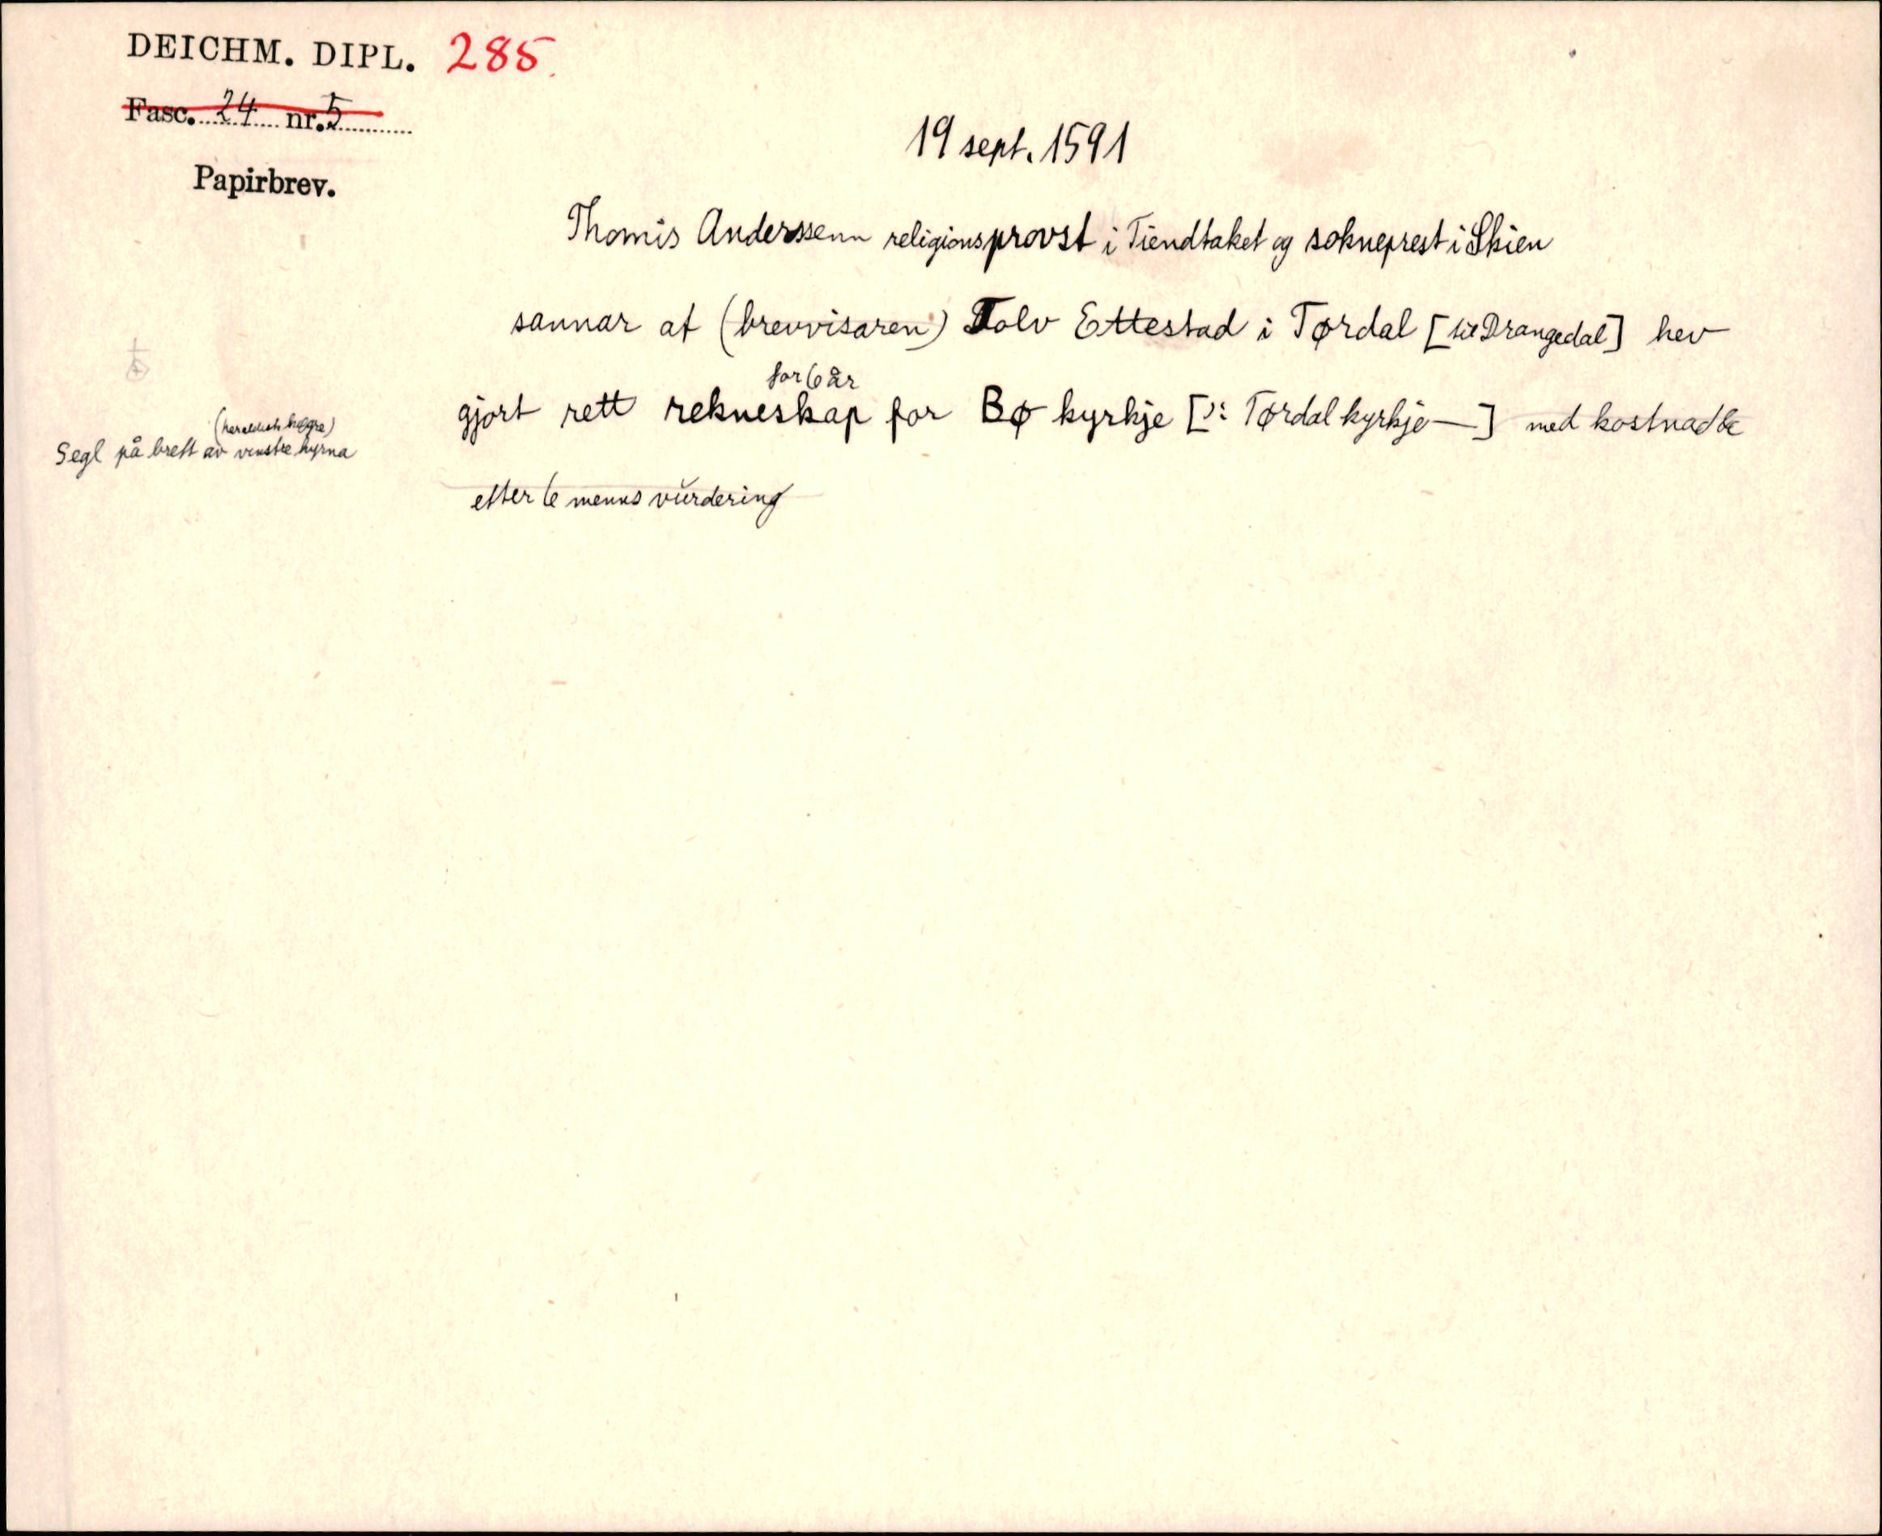 DEICHM. DIPL. 285.
Fasc. 24 nr. 5
Papirbrev.
19 sept. 1591
Thomis Anderssenn religionsprovst i Tiendtaket og sokneprest i Skien
sannar at (brevvisaren) Tolv Ettestad i Tørdal [ Drangedal] hev
for 6 år
gjort rett rekneskap for Bø kyrkje [ɔ: Tørdal kyrkje —] med kostnad &c
etter 6 menns vurdering
(heraldisk høgre)
Segl på brett av venstre hyrna